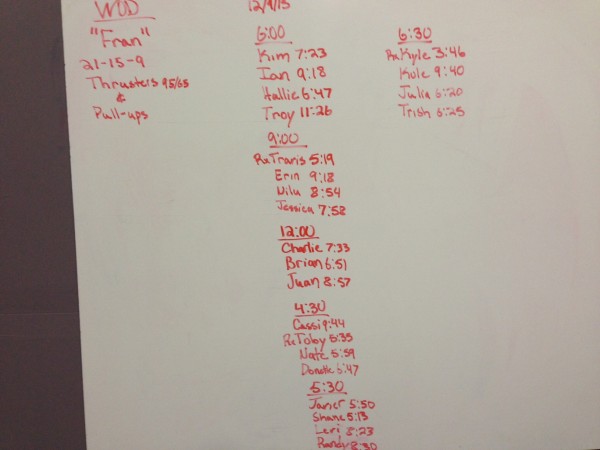 WOD
"Fran"
21-15-9
Thrusters 95/65
&
Pull-ups
12/9/15
6:00
Kim 7:23
Ian 9:18
Hallie 6:47
Troy 11:26
9:00
Rx Travis 5:19
Erin 9:18
Nilu 8:54
Jessica 7:58
12:00
Charlie 7:33
Brian 6:51
Juan 8:57
4:30
Cassi 9:44
Rx Toby 5:35
Nate 5:59
6:47
5:30
5:50
Shane 5:13
8:23
Randy 8:30
6:30
Rx Kyle 3:46
Kole 9:40
Julia 6:20
Trish 6:25